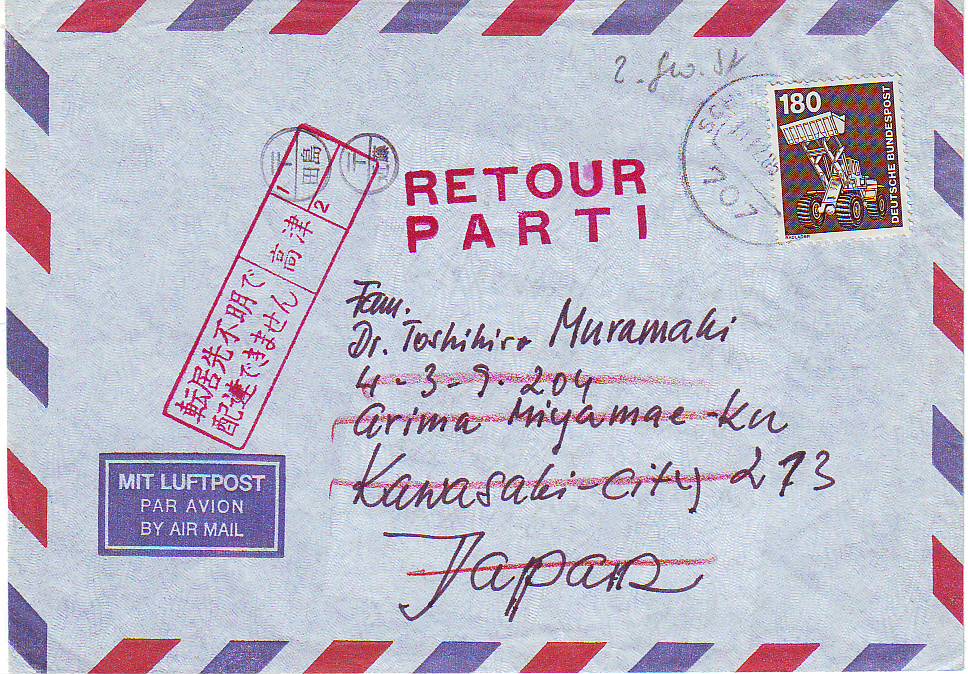 180
DEUTSCHE BUNDESPOST
RADLADER
704
RETOUR
PARTI
田島
1
2
高津
転居先不明で
配達できません
Fam.
Dr. Toshihiro Muramaki
4-3-9. 204
Arima Miyamae-Ku
Kawasaki-City 213
Japan
MIT LUFTPOST
PAR AVION
BY AIR MAIL